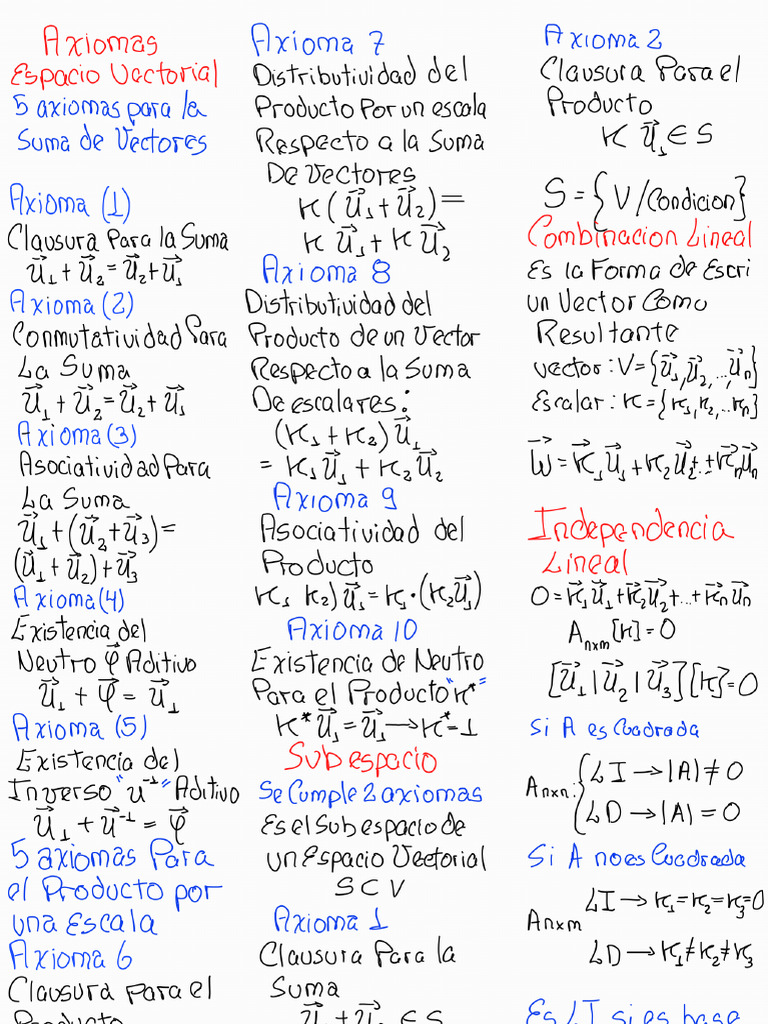 Axiomas
Espacio Vectorial
5 axiomas para la
Suma de Vectores
Axioma (1)
Clausura Para la Suma
U⃗₁ + U⃗₂ = U⃗₂ + U⃗₁
Axioma (2)
Conmutatividad Para
La Suma
U⃗₁ + U⃗₂ = U⃗₂ + U⃗₁
Axioma (3)
Asociatividad Para
La Suma
U⃗₁ + (U⃗₂ + U⃗₃) =
(U⃗₁ + U⃗₂) + U⃗₃
Axioma (4)
Existencia del
Neutro φ⃗ Aditivo
U⃗₁ + φ⃗ = U⃗₁
Axioma (5)
Existencia del
Inverso "u⁻¹" Aditivo
U⃗₁ + U⃗⁻¹ = φ⃗
5 axiomas Para
el Producto por
una Escala
Axioma 6
Clausura Para el
Producto
Axioma 7
Distributividad del
Producto Por un escala
Respecto a la Suma
De Vectores
K (U⃗₁ + U⃗₂) =
K U⃗₁ + K U⃗₂
Axioma 8
Distributividad del
Producto de un Vector
Respecto a la Suma
De escalares:
(K₁ + K₂) U⃗₁
= K₁ U⃗₁ + K₂ U⃗₂
Axioma 9
Asociatividad del
Producto
K₁ K₂) U⃗₁ = K₁ · (K₂ U⃗₁)
Axioma 10
Existencia de Neutro
Para el Producto "K*"
K* U⃗₁ = U⃗₁ → K* = 1
Subespacio
Se Cumple 2 axiomas
Es el Subespacio de
un Espacio Vectorial
S C V
Axioma 1
Clausura Para la
Suma
U⃗₁ + U⃗₂ ∈ S
Axioma 2
Clausura Para el
Producto
K U⃗₁ ∈ S
S = {V / Condicion}
Combinacion Lineal
Es la Forma de Escri
un Vector Como
Resultante
vector : V = {U⃗₁, U⃗₂, ..., U⃗n}
Escalar : K = {K₁, K₂, ... Kn}
W⃗ = K⃗₁ U⃗₁ + K₂ U⃗₂ + .. + K⃗n U⃗n
Independencia
Lineal
0 = K⃗₁ U⃗₁ + K⃗₂ U⃗₂ + ... + K⃗n U⃗n
Anxm [K] = 0
[U⃗₁ | U⃗₂ | U⃗₃] [K] = 0
Si A es Cuadrada
Anxn : { LI → |A| ≠ 0
LD → |A| = 0
Si A no es Cuadrada
LI → K₁ = K₂ = K₃ = 0
Anxm
LD → K₁ ≠ K₂ ≠ K₃
Es LI si es base